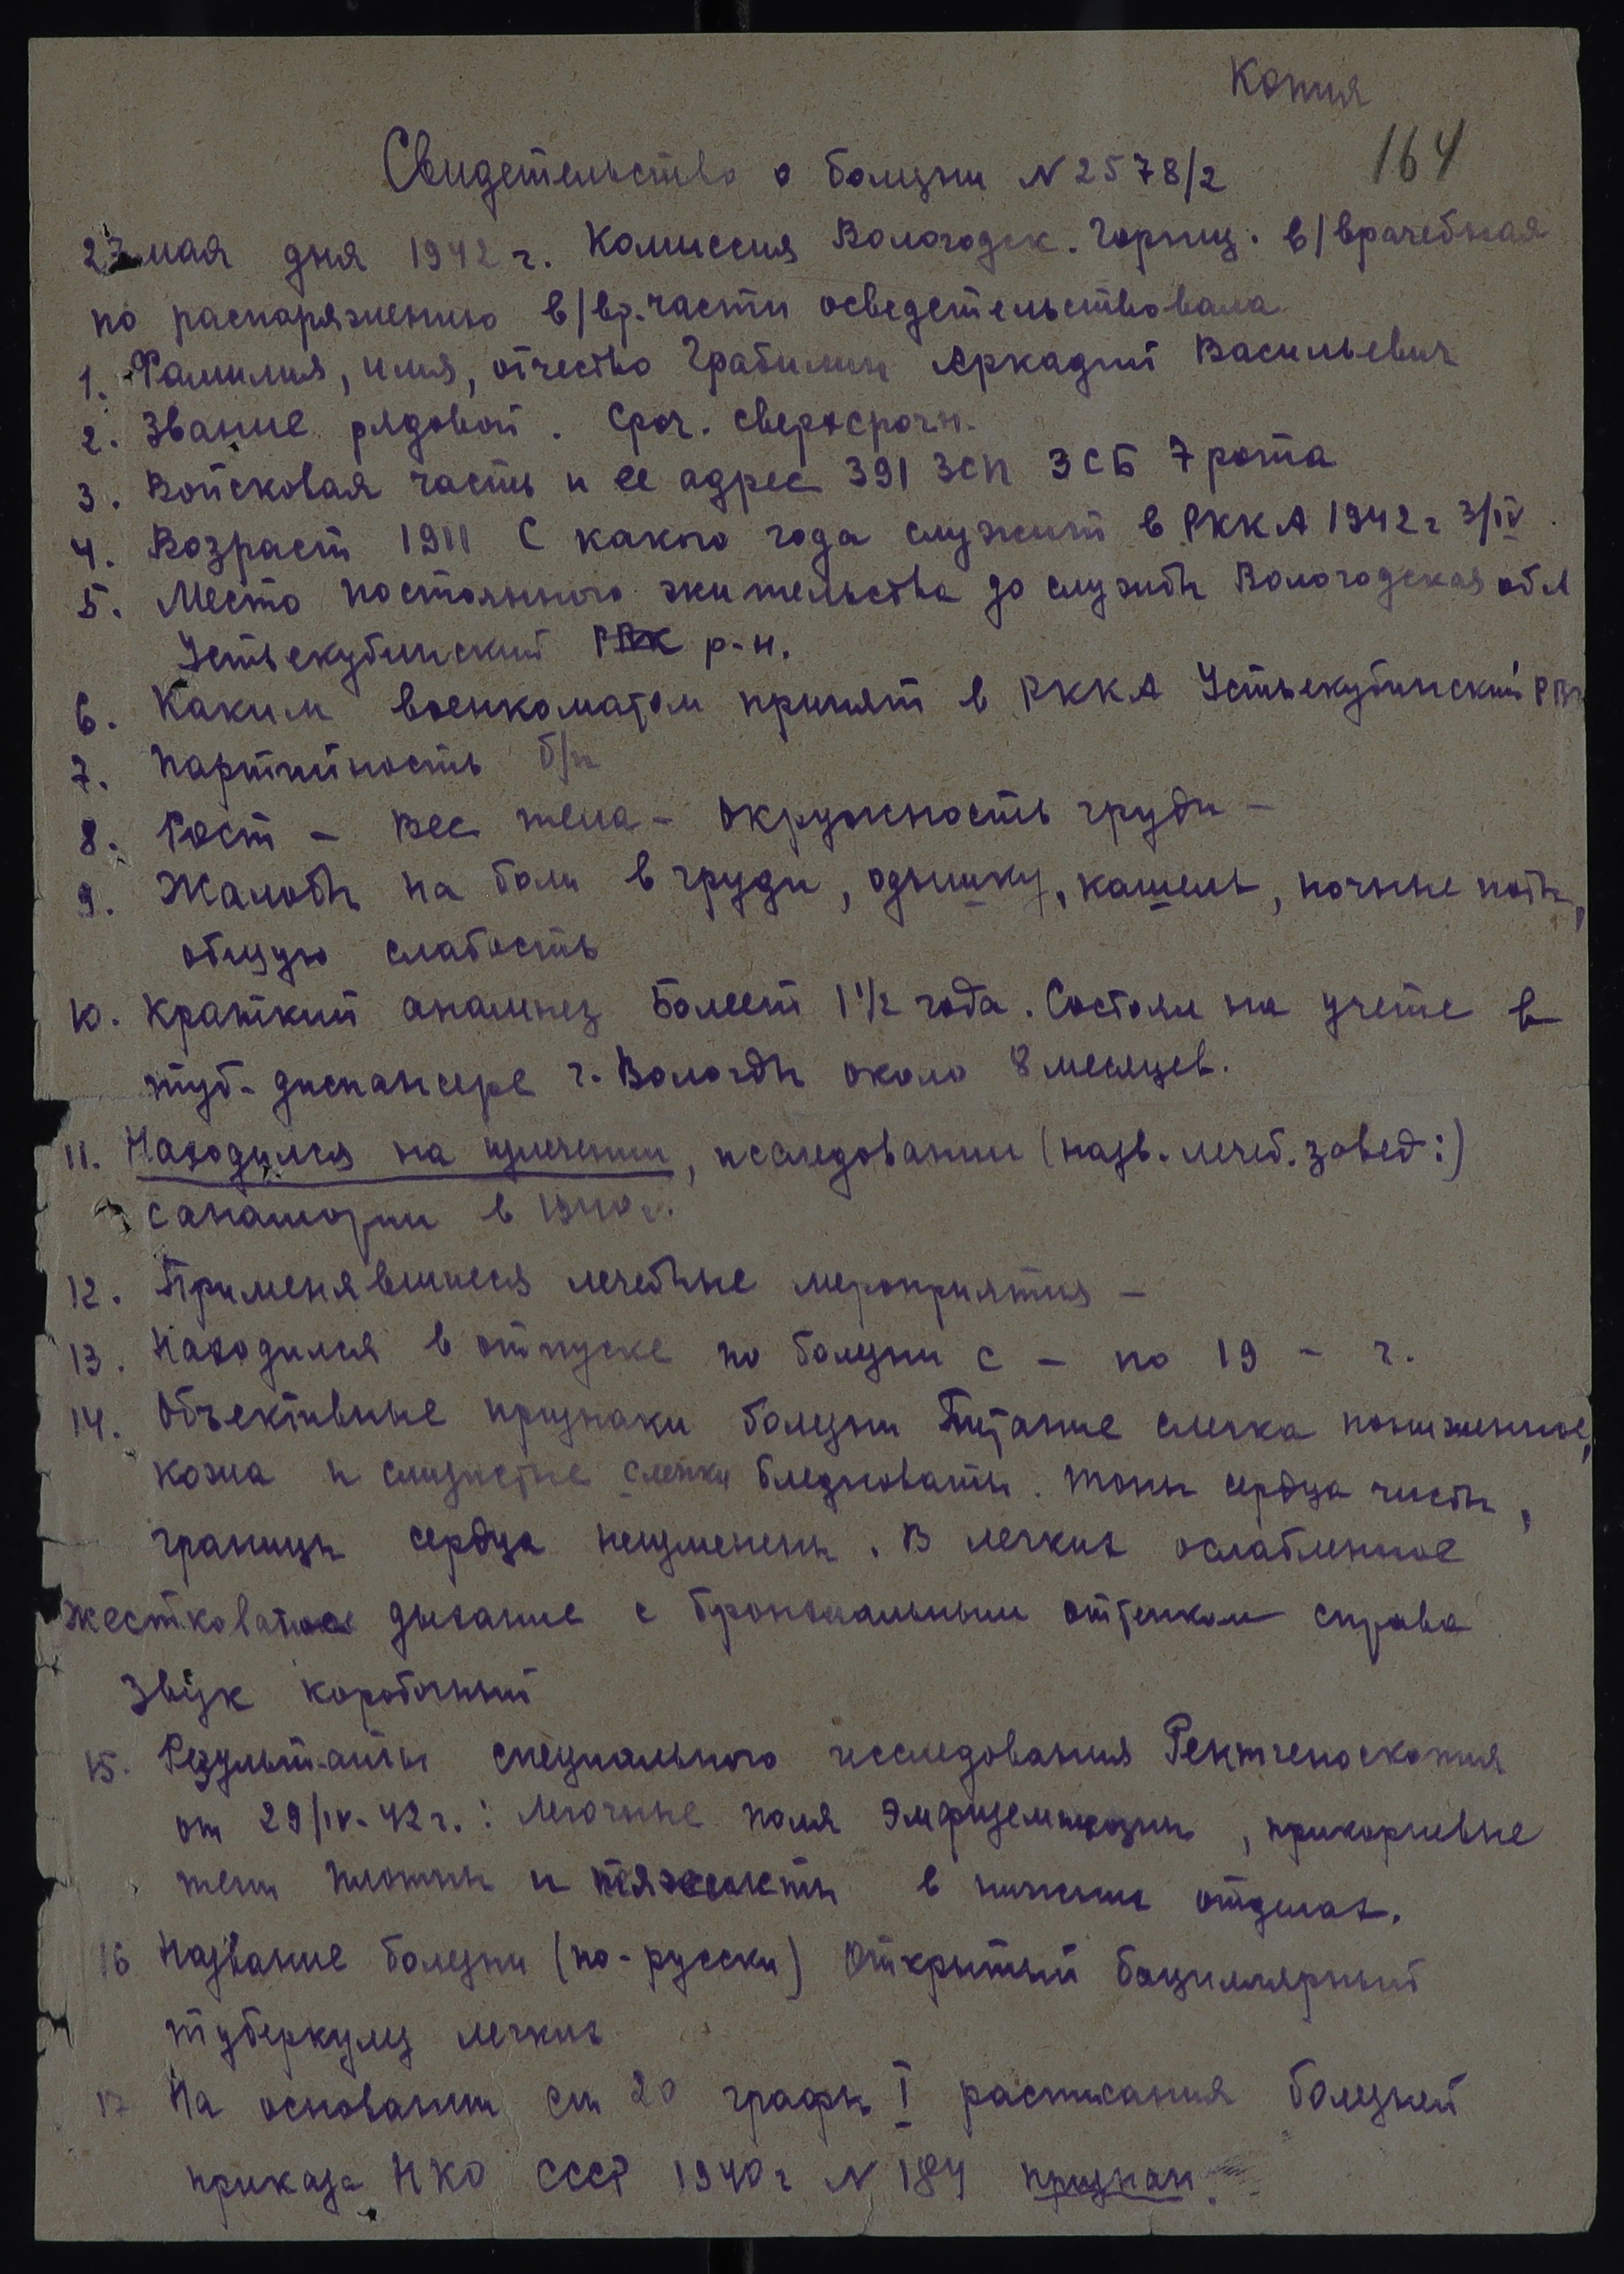 Копия
164
Свидетельство о болезни N 2578/2
27 мая дня 1942 г. Комиссия Вологодск. в/врачебная
по распоряжению в/вр. части осведетельствовала
1. Фамилия, имя, отчество Грабилин Аркадий Васильевич
2. Звание рядовой. Сроч. сверхсрочн.
3. Войсковая часть и ее адрес 391 ЗСП 3 СБ 7 рота
4. Возраст 1911 С какого года служит в РККА 1942 г 3/IV.
5. Место постоянного жительства до службы Вологодская обл
Устьекубинский р-н.
6. Каким военкоматом принят в РККА Устьекубинский РВК
7. Партийность б/п
8. Рост – Вес тела – Окружность груди –
9. Жалобы на боли в груди, одышку, кашель, ночные поты,
общую слабость
10. Краткий анамнез Болеет 1 1/2 года. Состоял на учете в
туб-диспансере г. Вологды около 8 месяцев.
11. Находился на излечении, исследовании (назв. лечеб. завед:)
санатории в 1940 г.
12. Применявшиеся лечебные мероприятия –
13. Находился в отпуске по болезни с – по 19 – г.
14. Объективные признаки болезни Питание слегка пониженное,
кожа и слизистые слегка бледноваты. Тоны сердца чисты,
границы сердца неизменены. В легких ослабленное
жестковатое дыхание с бронхиальным оттенком справа
Звук коробочный
15. Результаты специального исследования Рентгеноскопия
от 29/IV-42 г.: Легочные поля эмфизематозны, прикорневые
тени плотны и тяжисты в нижних отделах.
16 Название болезни (по-русски) Открытый бациллярный
туберкулез легких
17 На основании ст 20 графы I расписания болезней
приказа НКО СССР 1940 г N 184 признан